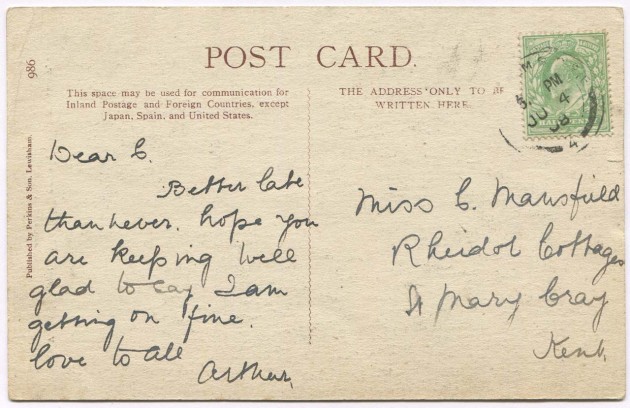 986
POST CARD.
This space may be used for communication for
Inland Postage and Foreign Countries, except
Japan, Spain, and United States.
THE ADDRESS ONLY TO BE
WRITTEN HERE.
PM
JU 4
08
Published by Perkins & Son, Lewisham.
Dear C.
Better late
than never. hope you
are keeping well
glad to say I am
getting on fine.
love to all
Arthur.
Miss C. Mansfield
Rheidol Cottages
St Mary Cray
Kent.